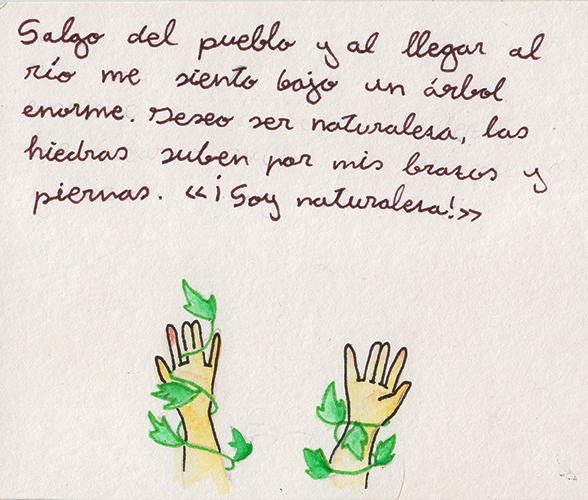 Salgo del pueblo y al llegar al
río me siento bajo un árbol
enorme. Deseo ser naturalesa, las
hiedras suben por mis brazos y
piernas. «¡Soy naturalesa!»